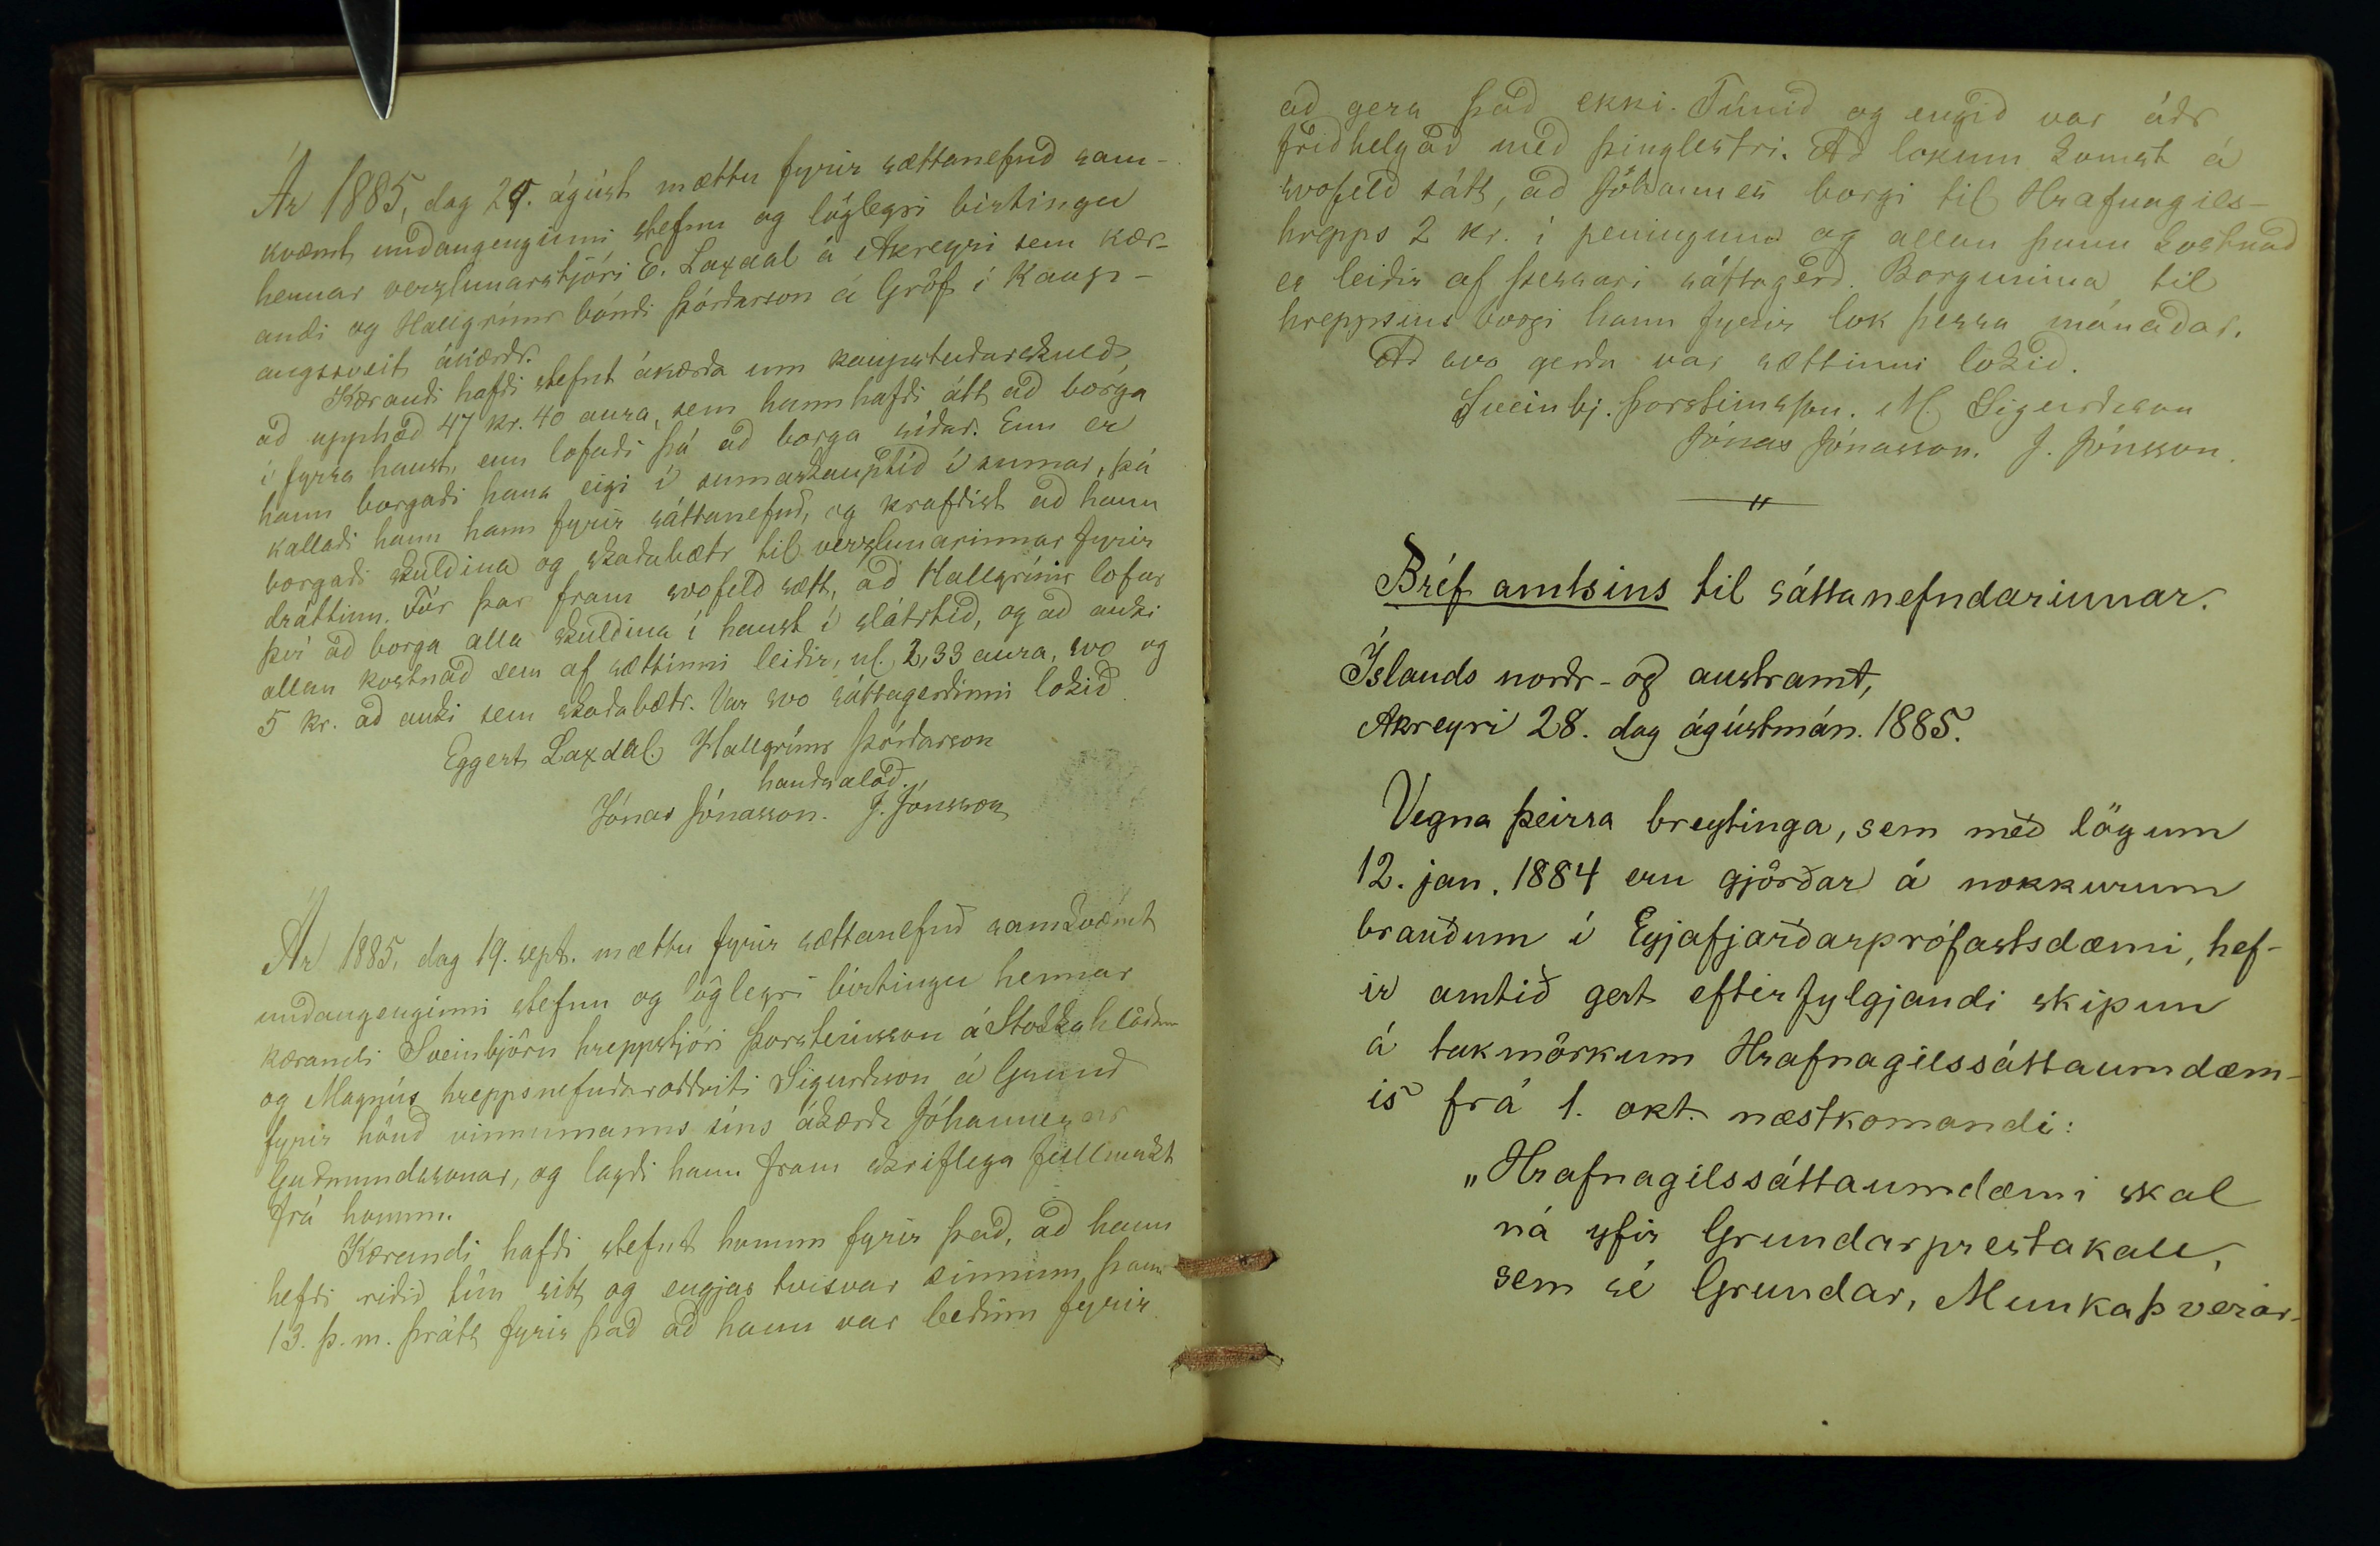 Ár 1885, dag 29. ágúst mættu fyrir sættanefnd sam-
kvæmt undangenginni stefnu og löglegri birtingu
hennar verzlunarstjóri E. Laxdal á Akreyri sem kær-
andi og Hallgrímr bóndi Þórðarson á Gröf í Kaup-
angssveit ákærðr.
Kærandi hafði stefnt ákærða um kaupstaðarskuld
að upphæð 47 kr. 40 aura, sem hann hafði átt að borga
í fyrra haust, enn lofaði þá að borga síðar. Enn er
hann borgaði hana eigi í sumarkauptíð í sumar, þá
kallaði hann hann fyrir sáttanefnd, og krafðist að hann
borgaði skuldina og skaðabætr til verzlunarinnar fyrir
dráttinn. Fór þar fram svofeld sætt, að Hallgrímr lofar
því að borga alla skuldina í haust í slátrtíð, og að auki
allan kostnað sem af sættinni leiðir, nl. 2,33 aura, svo og
5 kr. að auki sem skaðabætr. Var svo sáttagerðinni lokið.
Eggert Laxdal. Hallgrímr Þórðarson
handsalað.
Jónas Jónasson. J. Jónsson
Ár 1885, dag 19. sept. mættu fyrir sættanefnd samkvæmt
undangenginni stefnu og löglegri birtingu hennar
kærandi Sveinbjörn hreppstjóri Þorsteinsson á Stokkahlöðum
og Magnús hreppsnefndaroddviti Sigurðsson á Grund
fyrir hönd vinnumanns síns ákærðs Jóhannesar
Guðmundssonar, og lagði hann fram skriflega fullmakt
frá honum.
Kærandi hafði stefnt honum fyrir það, að hann
hefði riðið tún sitt og engjar tvisvar sinnum þann
13. þ.m. þrátt fyrir það að hann var beðinn fyrir
að gera það ekki. Túnið og engið var áðr
friðhelgað með þinglestri. Að lokum komst á
svofeld sátt, að Jóhannes borgi til Hrafnagils-
hrepps 2 kr. í peningum og allan þann kostnað
er leiðir af þessari sáttagerð. Borgunina til
hreppsins borgi hann fyrir lok þessa mánaðar.
Að svo gerðu var sættinni lokið.
Sveinbj. Þorsteinsson. M. Sigurðsson
Jónas Jónasson. J. Jónsson.
Bréf amtsins til sáttanefndarinnar.
Íslands norðr- og austramt,
Akreyri 28. dag ágústmán. 1885.
Vegna þeirra breytinga, sem með lögum
12. jan. 1884 eru gjörðar á nokkurum
brauðum í Eyjafjarðarprófastsdæmi, hef-
ir amtið gert eftirfylgjandi skipun
á takmörkum Hrafnagilssáttaumdæm-
is frá 1. okt. næstkomandi:
„Hrafnagilssáttaumdæmi skal
ná yfir Grundarprestakall,
sem sé Grundar, Munkaþverár-